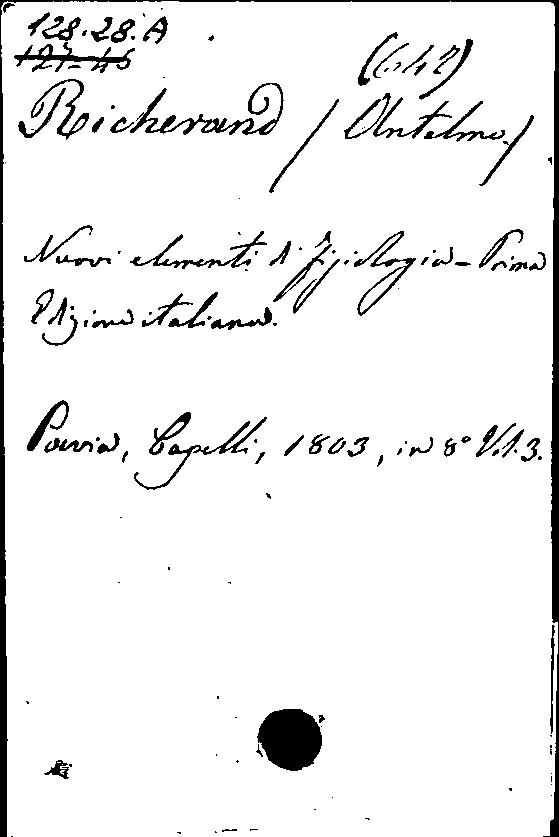 128.28.A
127-46
(642)
Richerand / Antelmo /
Nuovi elementi di Fisiologia - Prima
Edizione italiana.
Pavia, Capelli, 1803, in 8° Vol. 3.